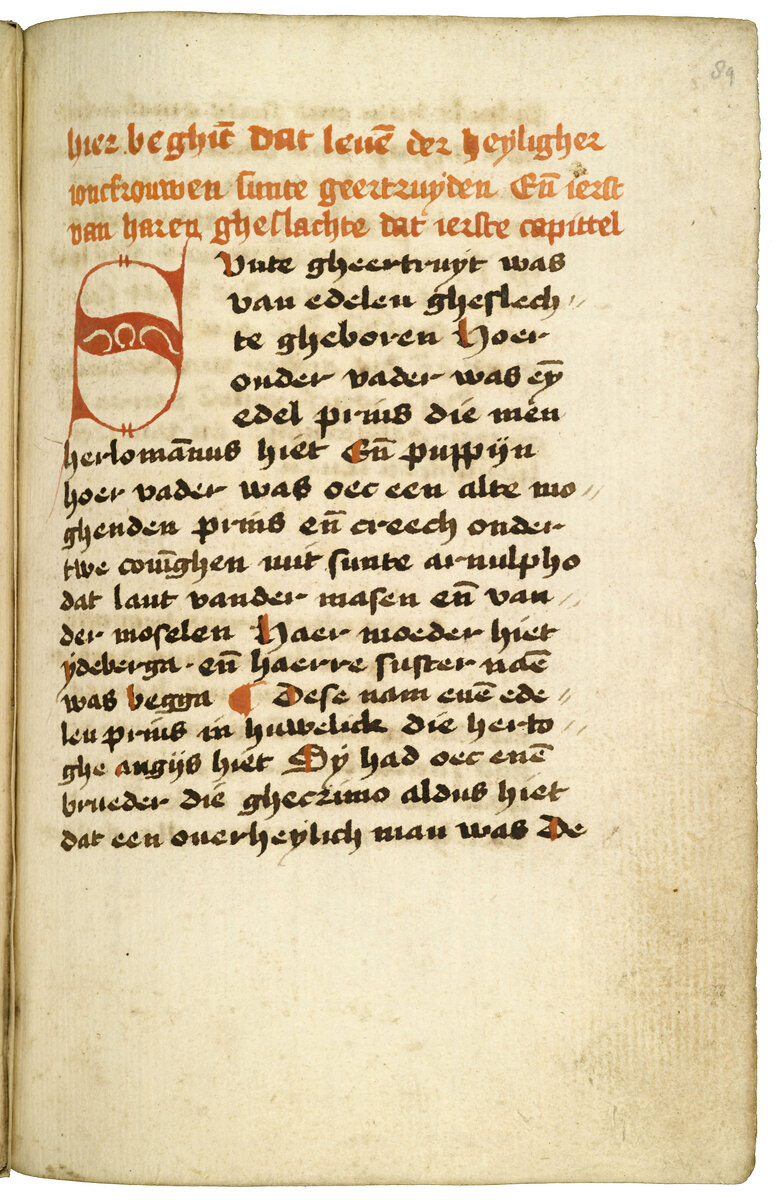 89
hier beghīt dat leuē der heyligher
ionckrouwen sunte geertruyden Eñ ierst
van haren gheslachte dat ierste capittel
SVnte gheertruyt was
van edelen gheslech〃
te gheboren Hoer
onder vader was eȳ
edel prins die men
herlomānus hiet Eñ puppijn
hoer vader was oec een alte mo〃
ghenden prins eñ creech onder
twe conīghen uut sunte arnulpho
dat lant vander masen eñ van〃
der moselen Haer moeder hiet
ydeberga · eñ haerre suster naē
was begga ¶ Dese nam enē ede〃
len prins in huwelick die herto〃
ghe angijs hiet Sy had oec enē
brueder die gheczimo aldus hiet
dat een ouerheylich man was De